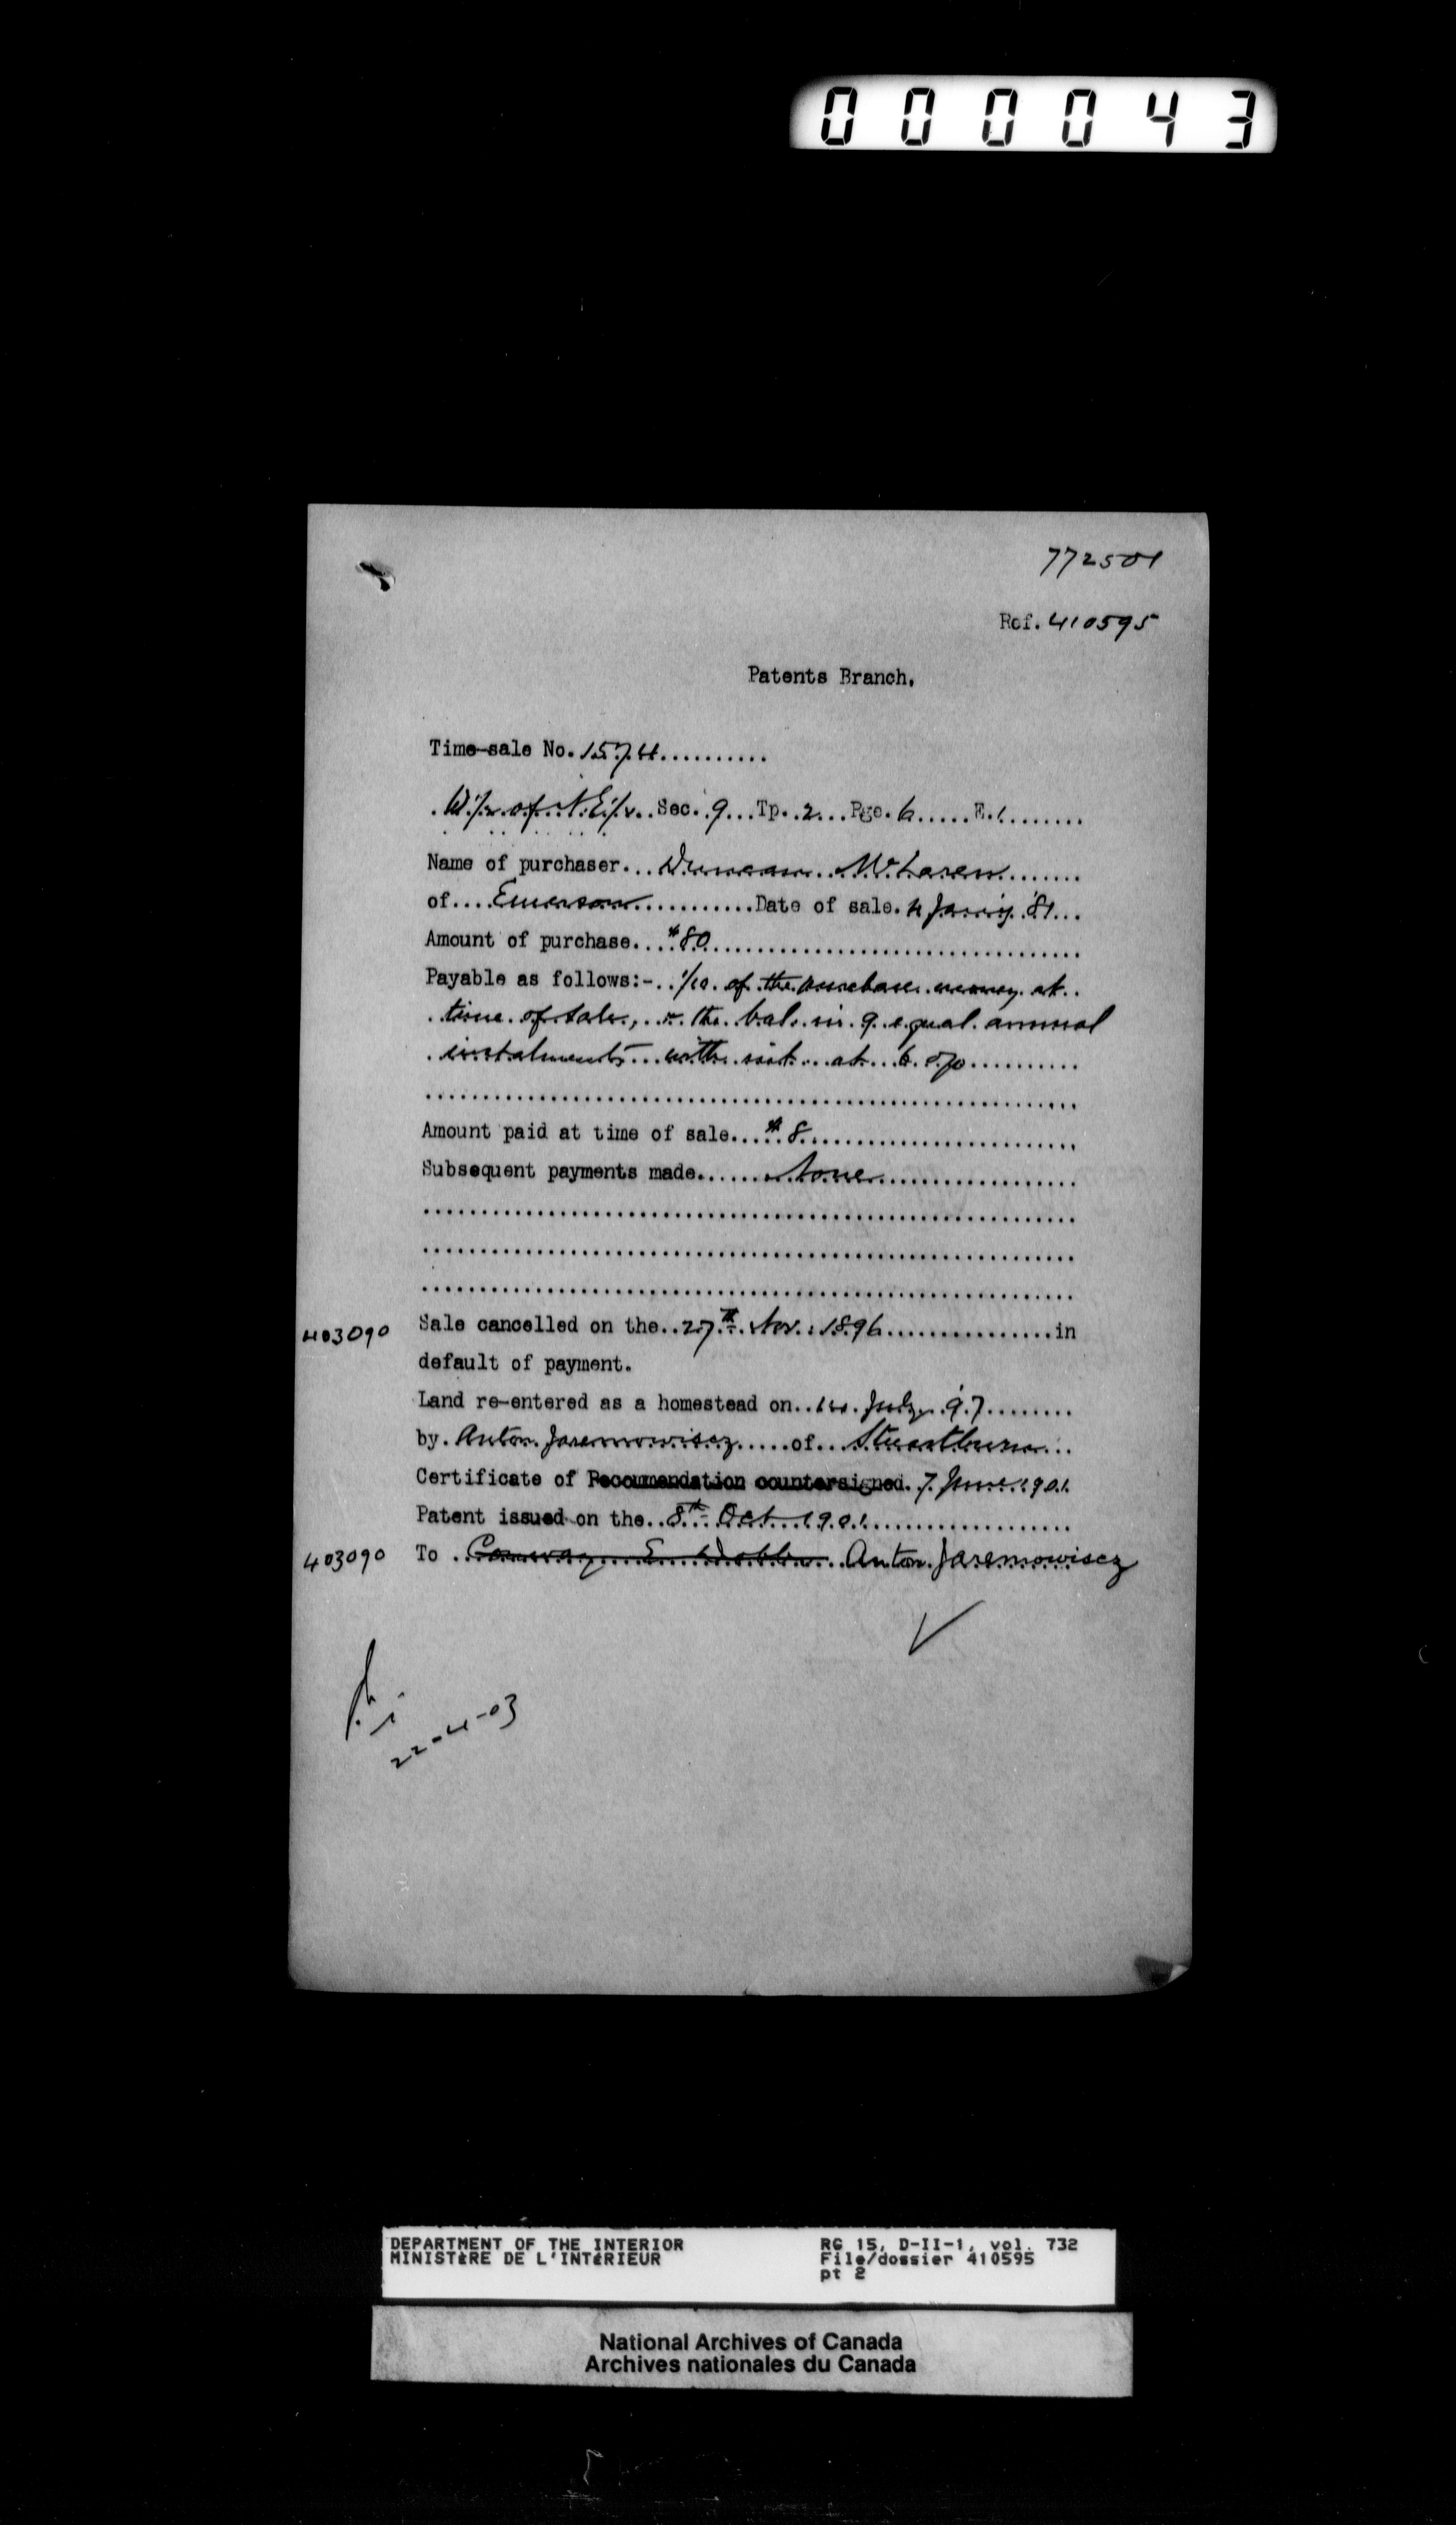 000043
772501
Ref. 410595
Patents Branch,
Time-sale No. 1574..........
W 1/2 of N.E 1/4 Sec. 9 Tp. 2 Rge. 6 E.1
Name of purchaser... Duncan McLaren
of.... Emerson ...........Date of sale. 4 Jan'y '81...
Amount of purchase... $80
Payable as follows:- 1/10 of the purchase money at
time of sale, & the bal. in 9 equal annual
instalments with int. at 6 %
Amount paid at time of sale... $8
Subsequent payments made...... None
403090 Sale cancelled on the.. 27th Nov. 1896 ................in
default of payment.
Land re-entered as a homestead on.. July '97
by. Anton Jaremowisez .....of... Stuartburn
Certificate of Recommendation countersigned. 7 June 1901
Patent issued on the.. 8th Oct. 1901
403090 To Conway E. Anton Jaremowisez
22-4-03
DEPARTMENT OF THE INTERIOR RG 15, D-II-1, vol. 732
MINISTÈRE DE L'INTÉRIEUR File/dossier 410595
pt 2
National Archives of Canada
Archives nationales du Canada